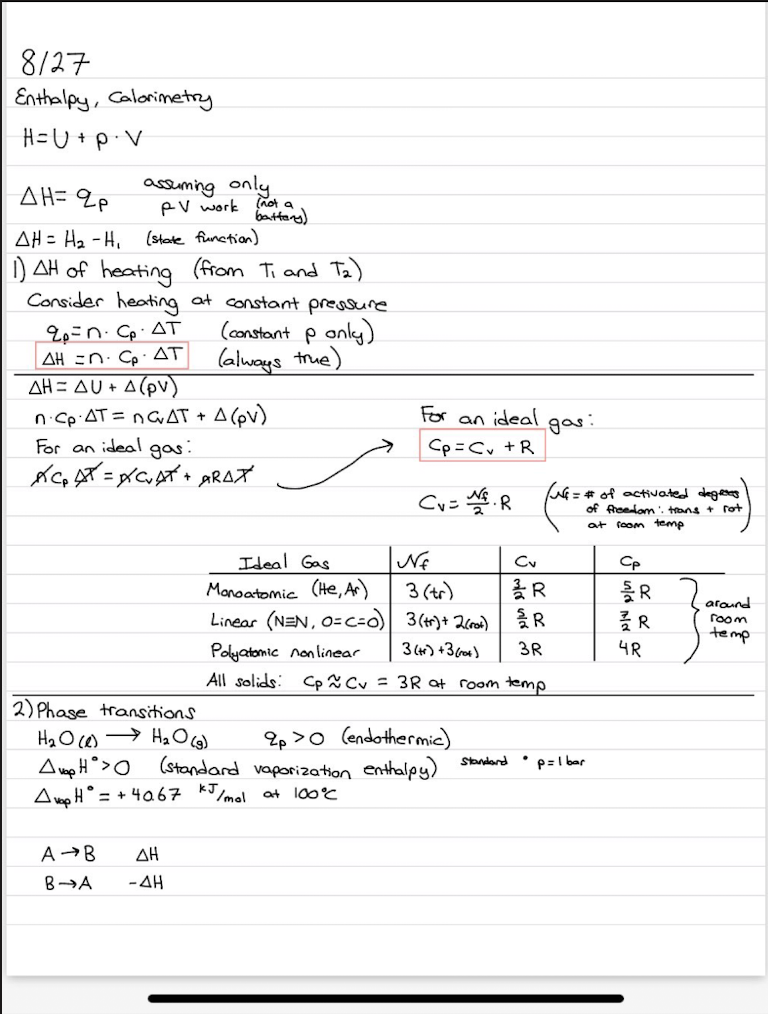 8/27
Enthalpy, Calorimetry
H = U + p · V
ΔH = qₚ assuming only pV work (not a battery)
ΔH = H₂ - H₁ (state function)
1) ΔH of heating (from T₁ and T₂)
Consider heating at constant pressure
qₚ = n · Cₚ · ΔT (constant p only)
ΔH = n · Cₚ · ΔT (always true)
ΔH = ΔU + Δ(pV)
n · Cₚ · ΔT = nCᵥΔT + Δ(pV)
For an ideal gas:
nCₚΔT = nCᵥΔT + nRΔT
For an ideal gas:
Cₚ = Cᵥ + R
Cᵥ = Nf/2 · R (Nf = # of activated degrees
of freedom: trans + rot
at room temp)
Ideal Gas Nf Cᵥ Cₚ
Monoatomic (He, Ar) 3 (tr) 3/2 R 5/2 R
Linear (N≡N, O=C=O) 3(tr) + 2(rot) 5/2 R 7/2 R
Polyatomic nonlinear 3(tr) + 3(rot) 3R 4R
around
room
temp
All solids: Cₚ ≈ Cᵥ = 3R at room temp
2) Phase transitions
H₂O(l) → H₂O(g) qₚ > 0 (endothermic)
ΔvapH° > 0 (standard vaporization enthalpy) standard ° p = 1 bar
ΔvapH° = + 40.67 kJ/mol at 100°C
A → B ΔH
B → A -ΔH